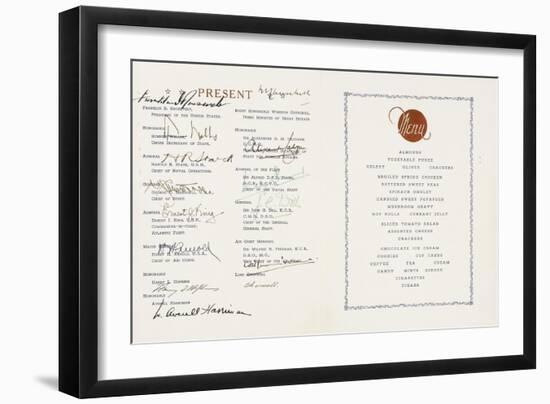 PRESENT
Franklin D Roosevelt
Franklin D. Roosevelt,
President of the United States.
Honorable
Sumner Welles,
Under Secretary of State.
Admiral
H R Stark
Harold R. Stark, U.S.N.
Chief of Naval Operations.
General
Chief of Staff.
Admiral
Ernest J King
Ernest J. King, U.S.N.
Commander-in-Chief,
Atlantic Fleet.
Major
H H Arnold
Henry H. Arnold, U.S.A.
Chief of Air Corps.
Honorable
Harry L. Hopkins
Harry L Hopkins
Honorable
Averell Harriman
W. Averell Harriman
Right Honorable Winston Churchill,
Prime Minister of Great Britain
Honorable
Sir Alexander
Alexander Cadogan
State for Foreign Affairs
Admiral of the Fleet
Sir Alfred D.P.R. Pound,
Chief of the Naval Staff
General
J. G. Dill
Sir John G. Dill, K.C.B.
C.M.G., D.S.O.
Chief of the General,
General Staff.
Air Chief Marshal
Sir Wilfrid R. Freeman, K.C.B.
D.S.O., M.C.
Vice Chief of the
Lord Cherwell
Cherwell
Menu
ALMONDS
VEGETABLE PUREE
CELERY OLIVES CRACKERS
BROILED SPRING CHICKEN
BUTTERED SWEET PEAS
SPINACH OMELET
CANDIED SWEET POTATOES
MUSHROOM GRAVY
HOT ROLLS CURRANT JELLY
SLICED TOMATO SALAD
ASSORTED CHEESE
CRACKERS
CHOCOLATE ICE CREAM
COOKIES CUP CAKES
COFFEE TEA CREAM
CANDY MINTS
CIGARETTES
CIGARS